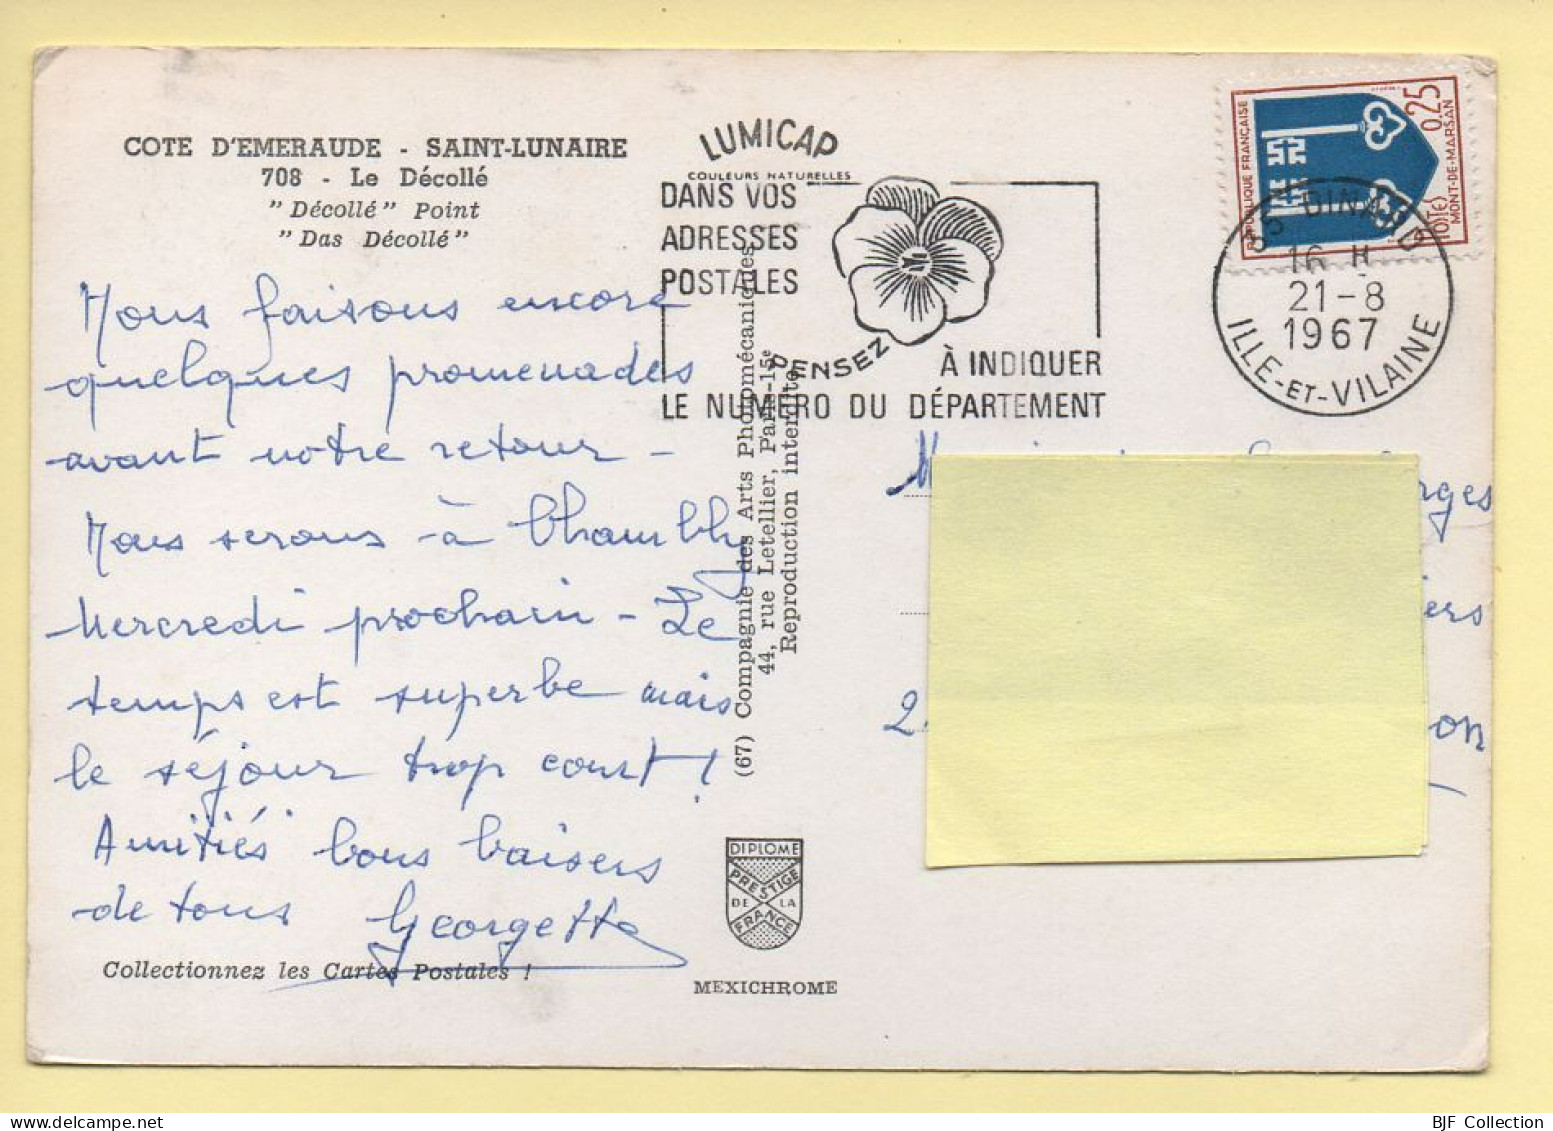 COTE D'EMERAUDE - SAINT-LUNAIRE
708 - Le Décollé
"Décollé" Point
"Das Décollé"
Nous faisons encore
quelques promenades
avant notre retour -
Nous serons à Chambly
Mercredi prochain - Le
temps est superbe mais
le séjour trop court !
Amitiés bons baisers
de tous Georgette
Collectionnez les Cartes Postales !
LUMICAP
COULEURS NATURELLES
(67) Compagnie des Arts Photomécaniques
44, rue Letellier, Paris-15e
Reproduction interdite
DIPLOME
PRESTIGE
DE LA
FRANCE
MEXICHROME
DANS VOS
ADRESSES
POSTALES
PENSEZ
À INDIQUER
LE NUMÉRO DU DÉPARTEMENT
RÉPUBLIQUE FRANÇAISE
0,25
POSTES
MONT-DE-MARSAN
35 DINARD
16 H
21-8
1967
ILLE-ET-VILAINE
rges
iers
2
on
BJF Collection